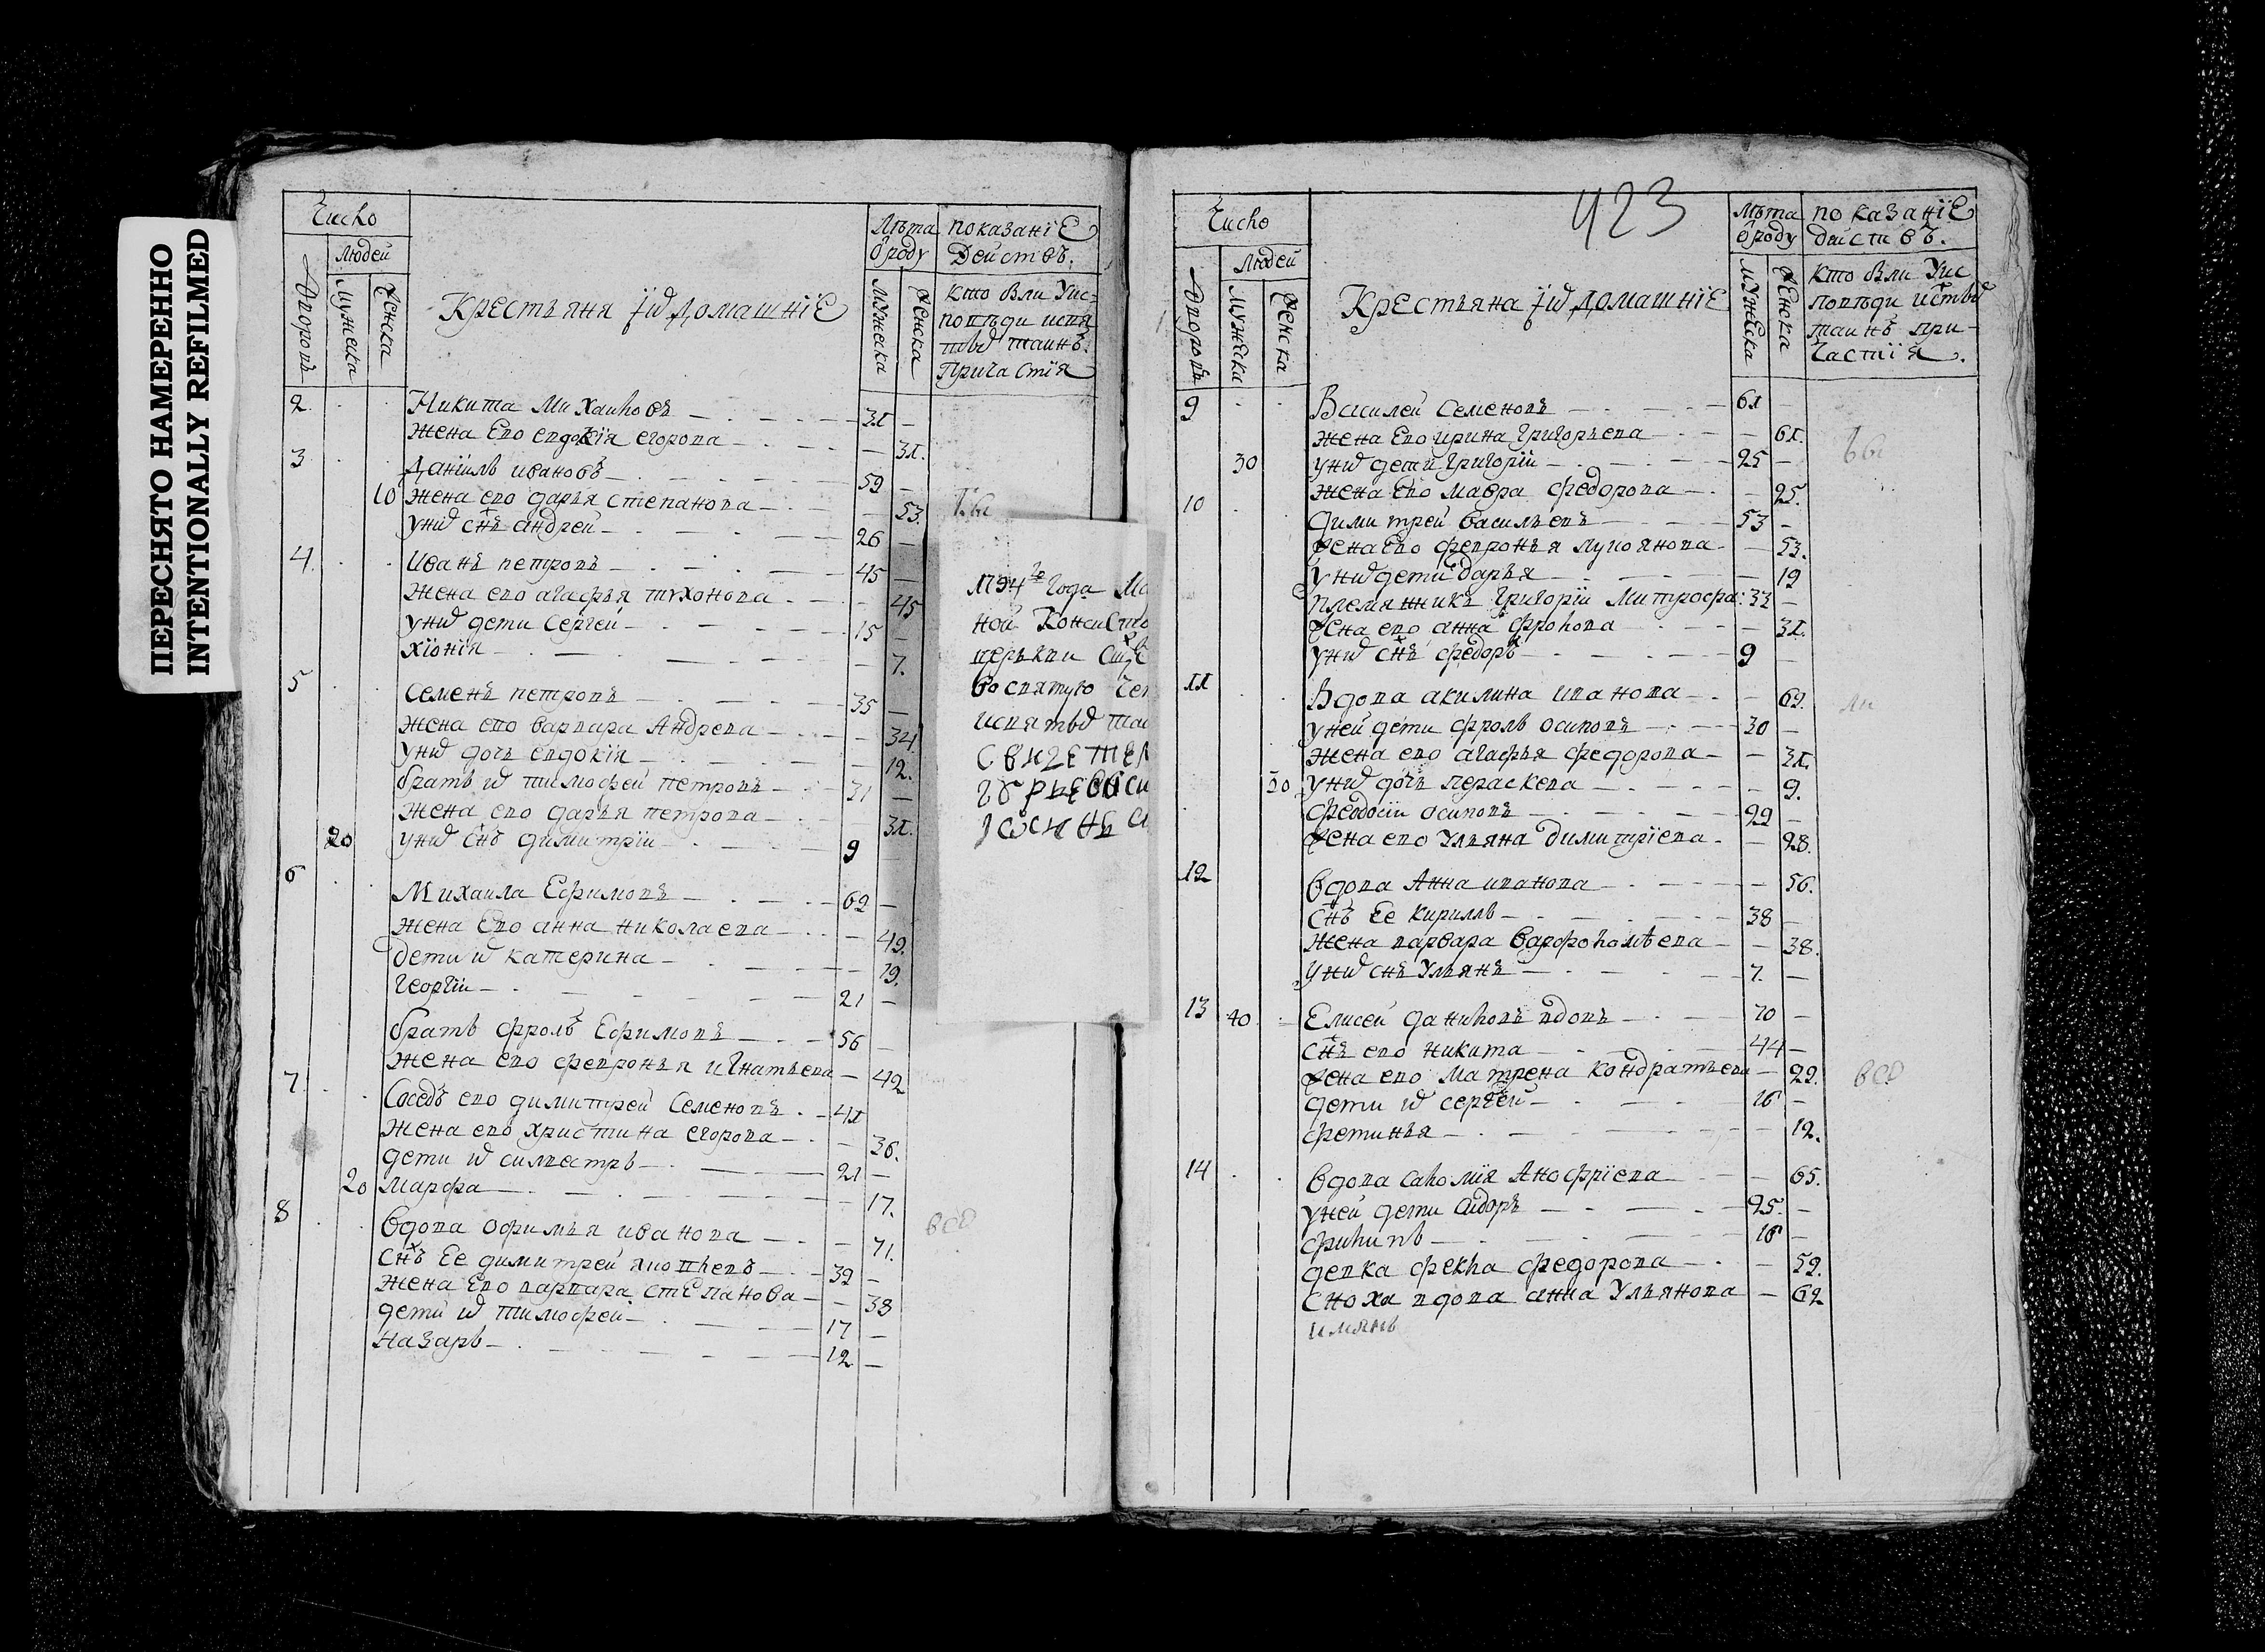 ПЕРЕСНЯТО НАМЕРЕННО
INTENTIONALLY REFILMED
Число
Людей
Дворовъ
Мужеска
Женска
Крестьяня и ихъ домашнїе
Лѣта
ѿ роду
Мужеска
Женска
показанїе
Действъ.
кто Был и у ис-
поведи испя
тыхъ таинъ
Причастїя
2 Никита Михаиловъ 31
жена его евдокїя егорова 31.
3 Данїилъ ивановъ 59
10 жена его дарья степанова 53.
у нихъ сн҃ъ андрей 26
4. Иванъ петровъ 45
жена его агафья тихонова 45
у нихъ дети сергей 15
хїонїя 7.
5 семенъ петровъ 35
жена его варвара Андрева 34.
у нихъ дочь евдокїя 12.
братъ их тимофей петровъ 31
жена его дарья петрова 31.
20 у нихъ сн҃ъ димитрїи 9
6 Михаила Ефимовъ 62
жена Его анна николаева 49.
дети их катерина 19.
Георгїи 21
братъ фролъ Ефимовъ 56
жена его февронья игнатьева 42
7 Соседъ его димитрей Семеновъ 41
жена его христина егорова 36.
дети их силвестръ 21
20 марфа 17.
8 вдова офимья иванова 71.
сн҃ъ Ее димитрей яковлевъ 39
жена Его варвара стЕпанова 38
дети их тимофей 17
назаръ 12
1794го года
ной Конси
церькви
во святую
423
Число
Людей
Дворовъ
Мужеска
Женска
Крестьяна и ихъ домашнїЕ
Лѣта
ѿ роду
Мужеска
Женска
показанїЕ
действъ.
кто Был и у ис
поведи истыхъ
таинъ при-
частїя.
9 Василей семеновъ 61
жена Его ирина григорьева 61.
30 у нихъ дети григорїи 25
жена Его мавра федорова 25.
10 димитрей васильевъ 53
жена Его февронья лукоянова 53.
у нихъ дети дарья 19
племянникъ григорїи митрофа: 33
жена его анна фролова 31.
у нихъ сн҃ъ федоръ 9
11 Вдова акилина иванова 69.
у ней дети фролъ осиповъ 30
жена его агафья федорова 31.
30 у нихъ дочь пераскева 9.
феодосїи осиповъ 29
жена его ульяна димитрїева 28.
12 вдова Анна иванова 56.
сн҃ъ Ее кирилъ 38
жена варвара варфоломѣева 38.
у нихъ сн҃ъ ульянъ 7.
13 40 Елисей даниловъ вдовъ 70
сн҃ъ его никита 44
жена его матрена кондратьева 29.
дети их сергей 16
фетинья 12.
14 вдова саломїя Анофрїева 65.
у ней дети сидоръ 25.
филипъ 16
девка фекла федорова 59.
сноха вдова анна ульянова 62